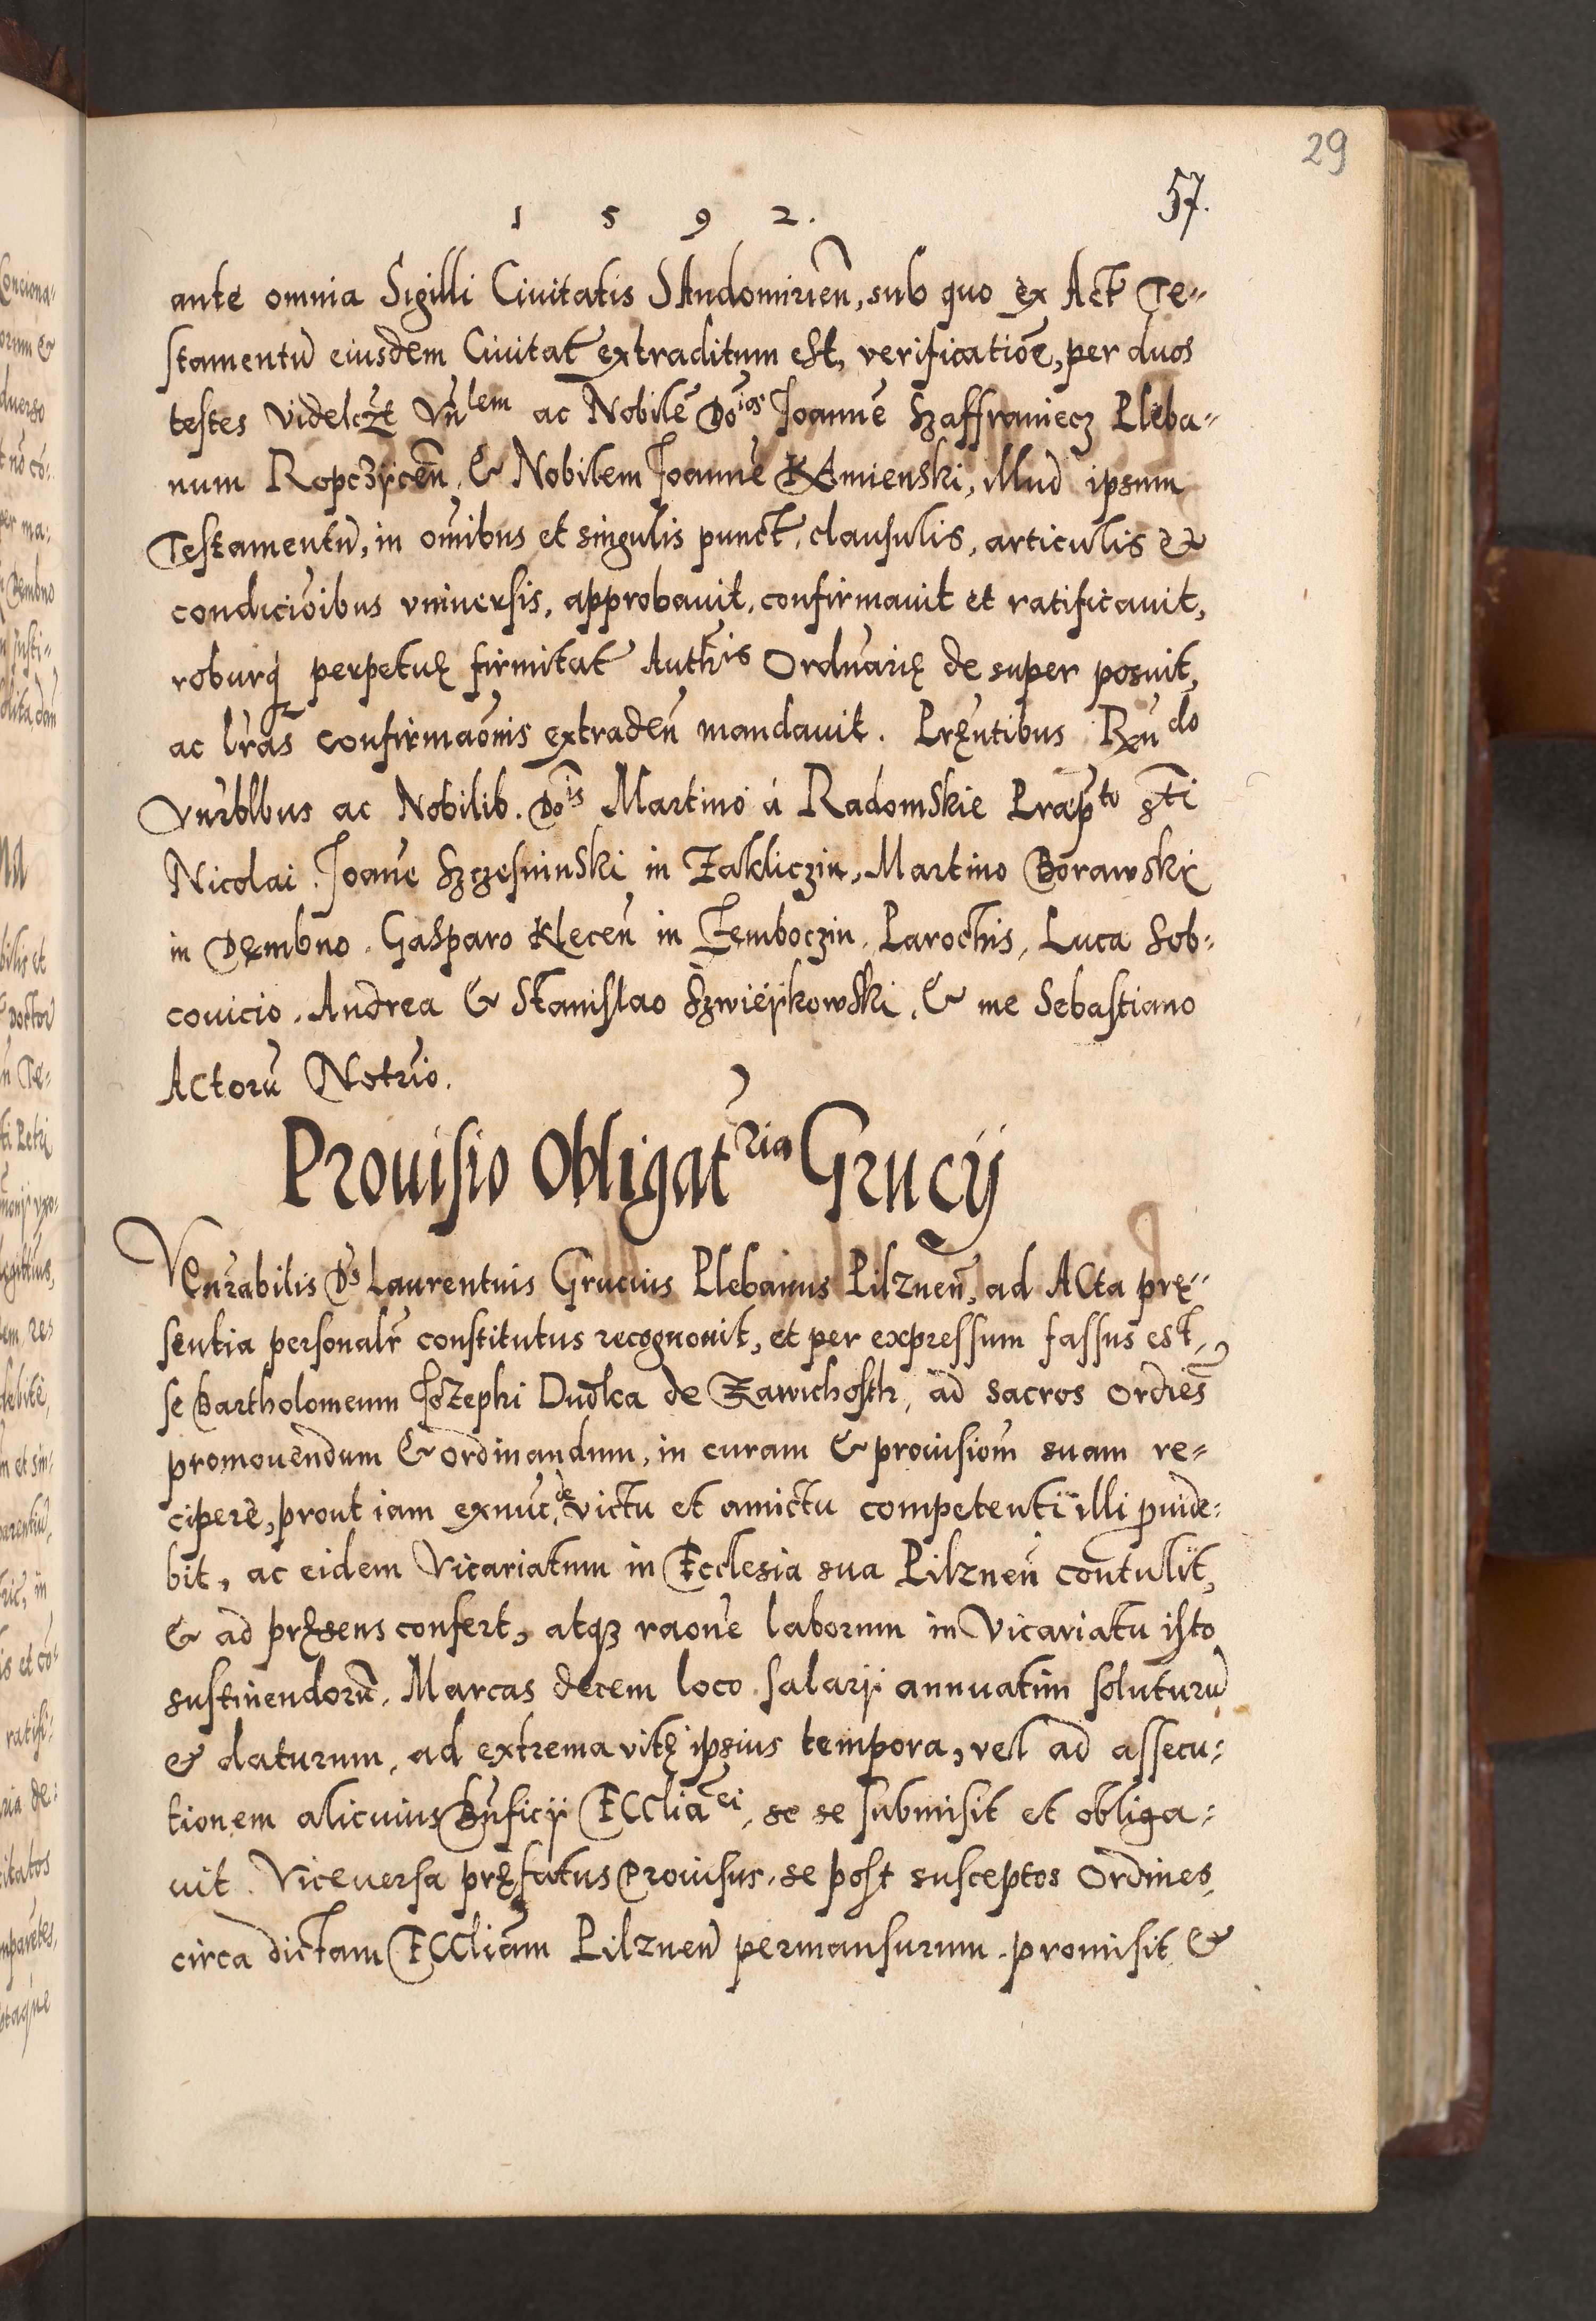 29
57.
1 5 9 2.
ante omnia Sigilli Ciuitatis SAndomirien̄, sub quo ex Act Te-
stamentū eiusdem Ciuitat extraditum est, verificatiōe, per duos
testes Videlczt Vn̄lem ac Nobilē Dōios Joannē Szaffraniecz Pleba-
num Ropczÿcen̄, & Nobilem Joannē KAmienski, illud ipsum
Testamentū, in om̄ibus et singulis punct, clausulis, articulis &
condiciōibus vniuersis, approbauit, confirmauit et ratificauit,
roburq perpetuę firmitat Authis Ordnarię de super posuit,
ac lr̄as confirmaōnis extraden̄ mandauit. Pręntibus Rxn̄do
Vnrblbus ac Nobilib. Dōis Martino á Radomskie Præpto sti
Nicolai. Joane Szczesninski in Zakliczin, Martino Borawski
in Dembno. Gasparo Klecen̄ in Zemboczin, Parochis, Luca Sob-
couicio, Andrea & Stanislao Szwieÿkowski, & me Sebastiano
Actorū Notrio.
Prouisio Obligatria Grucij
Venrabilis Ds Laurentius Grucius Plebanus Pilznen̄, ad Acta prę-
sentia personalr constitutus recognouit, et per expressum fassus est,
se Bartholomeum Jozephi Dudka de Zawichosth, ad sacros ordies
promouendum & ordinandum, in curam & prouisiom̄ suam re-
cipere, prout iam exnuc, de victu et amictu competenti illi puide-
bit, ac eidem Vicariatum in Ecclesia sua Pilznen̄ contulit,
& ad pręsens confert, atqz raone laborum in Vicariatu isto
sustinendorū, Marcas decem loco salarij annuatim soluturū
& daturum, ad extrema vitę ipsius tempora, vel ad assecu-
tionem alicuius Bn̄ficij Ecclia͞ei, se se submisit et obliga-
uit. Viceuersa pręfatus Prouisus, se post susceptos Ordines,
circa dictam Ecclia͞m Pilznen̄ permansurum promisit &